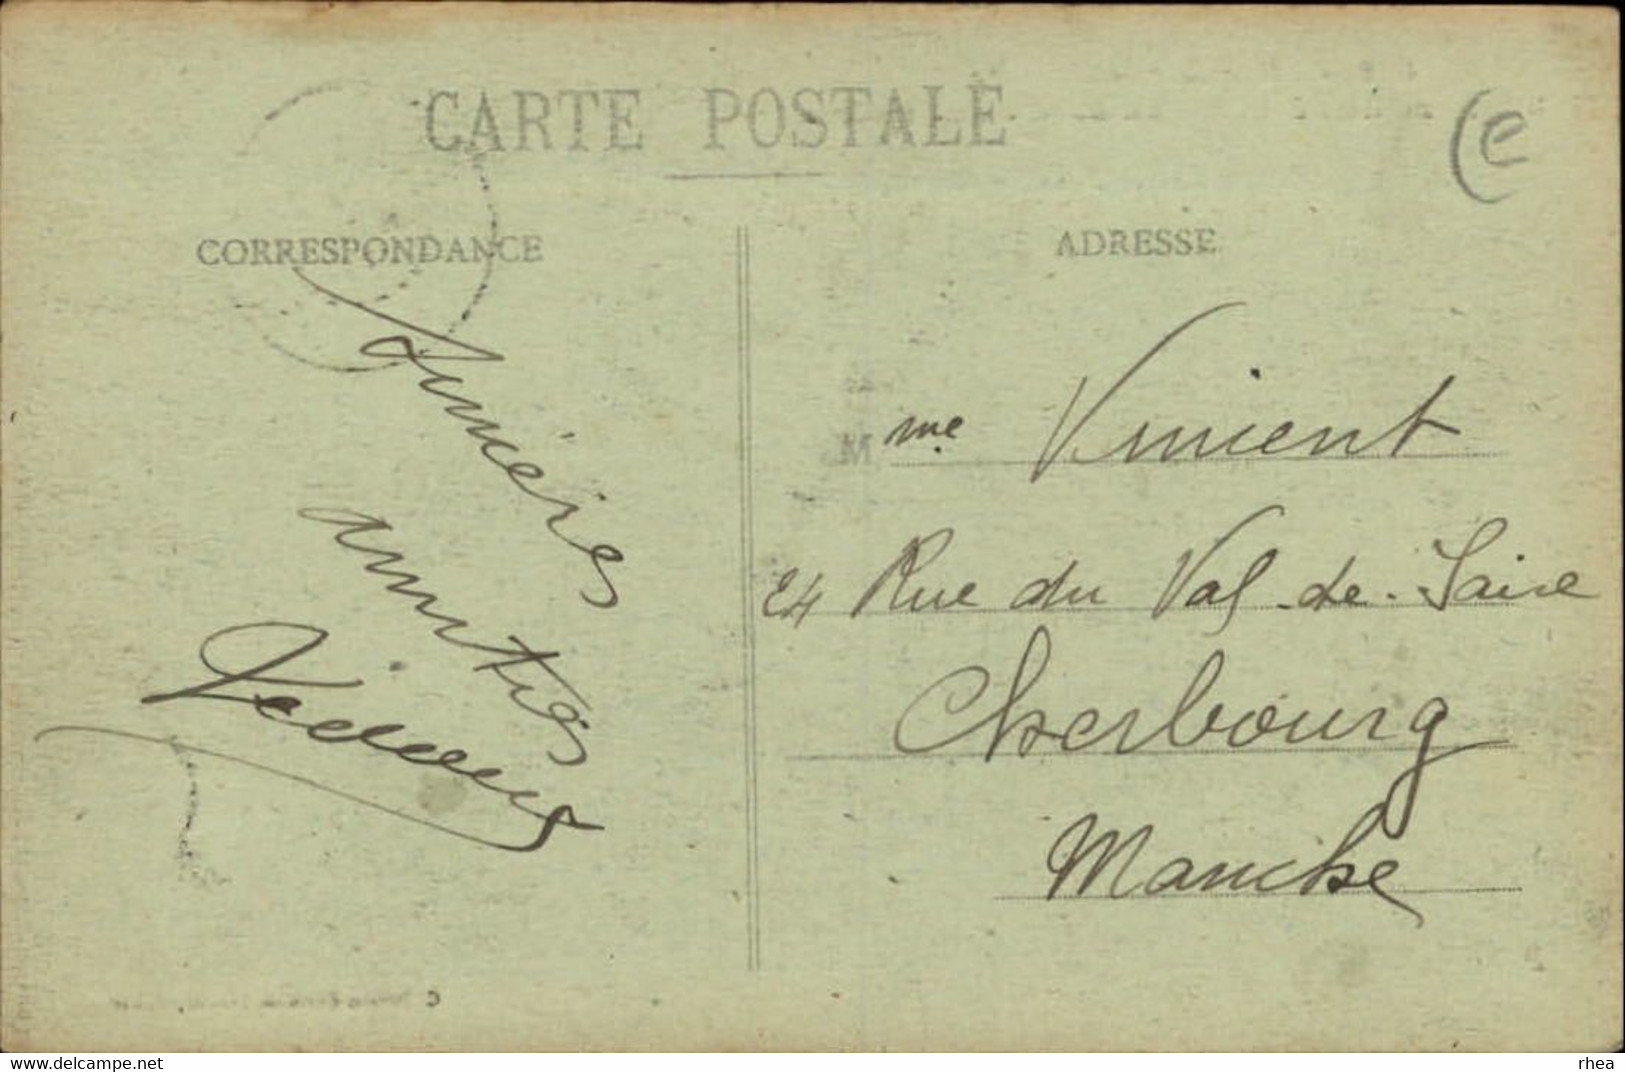 CARTE POSTALE
(e
CORRESPONDANCE
ADRESSE
Sincères
amitiés
Mme Vincent
24 Rue du Val-de-Saire
Cherbourg
Manche
delcampe.net
rhea